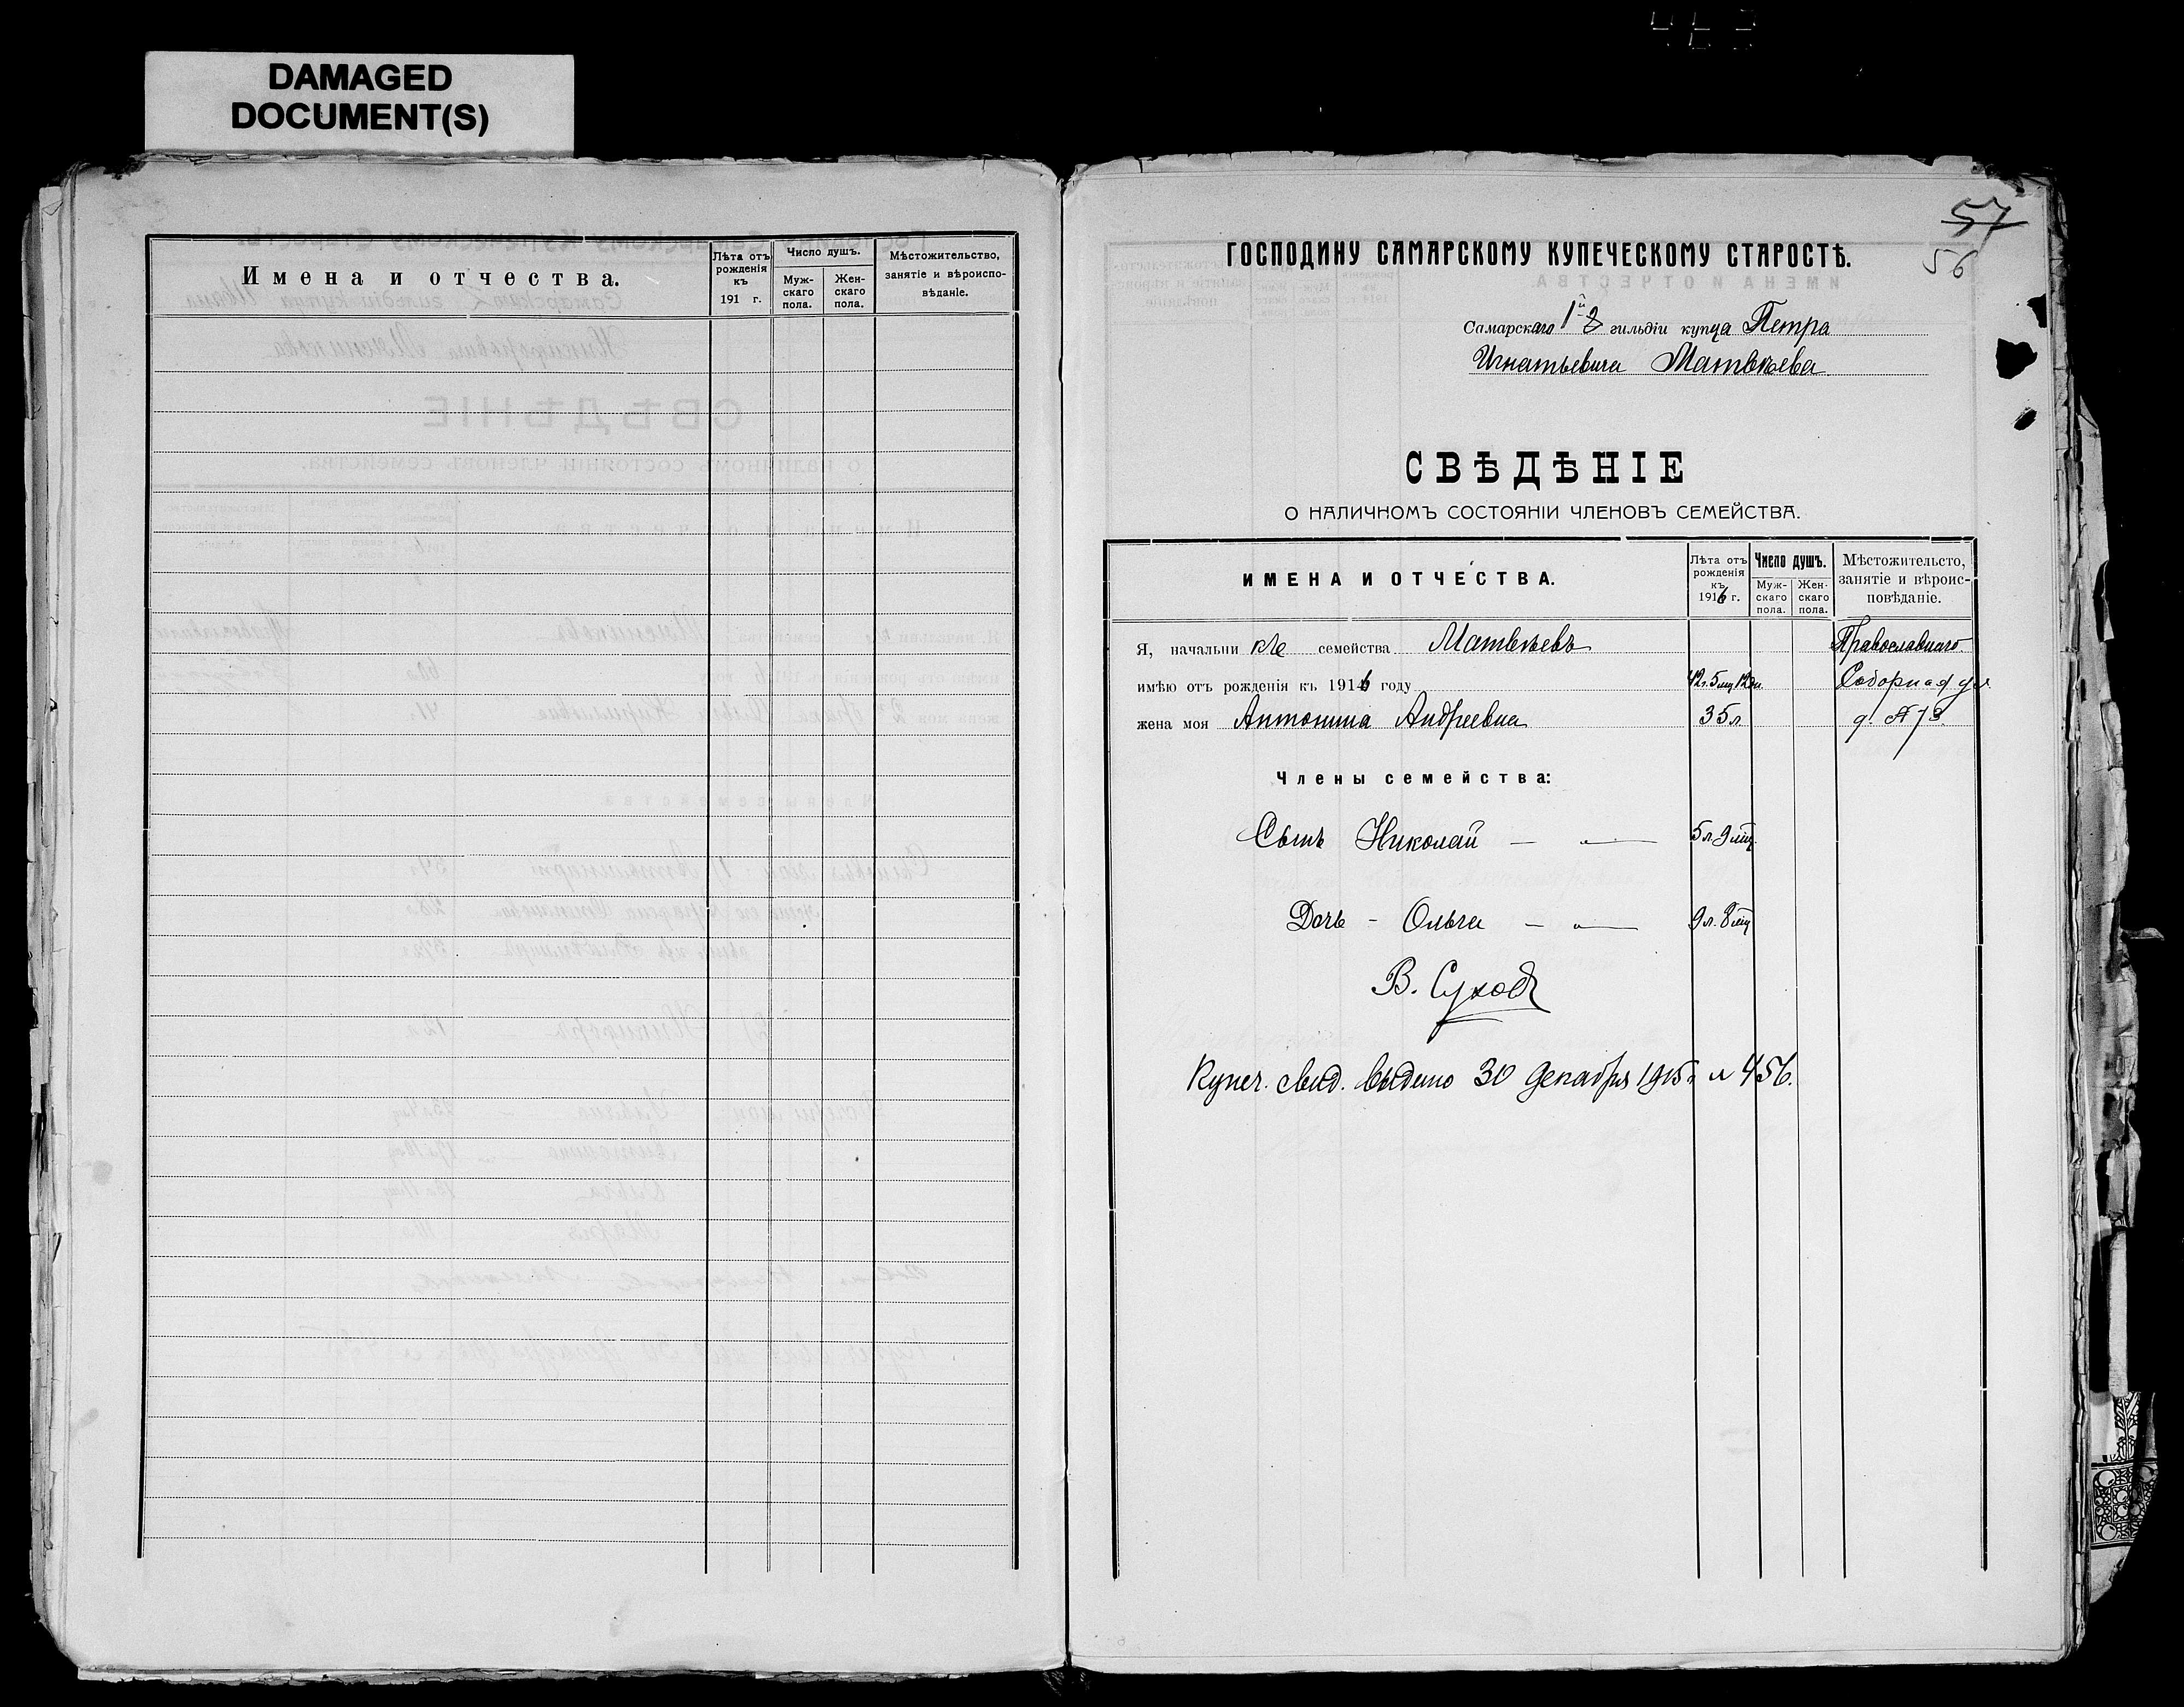 DAMAGED
DOCUMENT(S)
Имена и отчества.
Лѣта отъ рожденія къ 191 г.
Число душъ.
Муж-скаго пола.
Жен-скаго пола.
Мѣстожительство, занятіе и вѣроиспо-вѣданіе.
57
56
ГОСПОДИНУ САМАРСКОМУ КУПЕЧЕСКОМУ СТАРОСТѢ.
Самарскаго 1й гильдіи купца Петра
Игнатьевича Матвѣева
СВѢДѢНІЕ
О НАЛИЧНОМЪ СОСТОЯНІИ ЧЛЕНОВЪ СЕМЕЙСТВА.
ИМЕНА И ОТЧЕСТВА.
Лѣта отъ рожденія къ 1916 г.
Число душъ.
Муж-скаго пола.
Жен-скаго пола.
Мѣстожительсто, занятіе и вѣроис-повѣданіе.
Я, начальни къ семейства Матвѣевъ Православнаго
имѣю отъ рожденія къ 1916 году 42 г. 5 мц 12 дн. Соборная ул
жена моя Антонина Андреевна 35 л.
Члены семейства:
Сынъ Николай 5 л. 9 мц.
Дочь - Ольга 9 л. 8 мц
В. Сухов
Купеч. свид. выдано 30 декабря 1915 г. № 456.